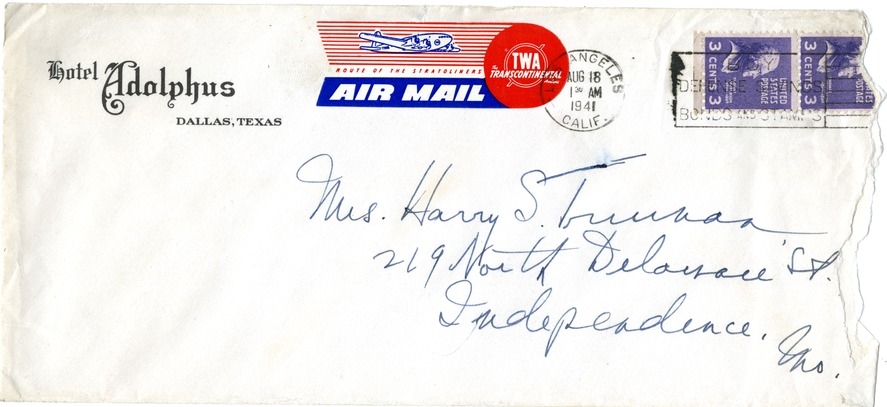 Hotel Adolphus
DALLAS, TEXAS
ROUTE OF THE STRATOLINERS
AIR MAIL
TWA
The TRANSCONTINENTAL Airline
ANGELES
AUG 18
1 30 AM
1941
CALIF.
3 CENTS 3
UNITED STATES POSTAGE
3 CENTS 3
DEFENSE
BONDS AND STAMPS
Mrs. Harry S. Truman
219 North Delaware St.
Independence,
Mo.